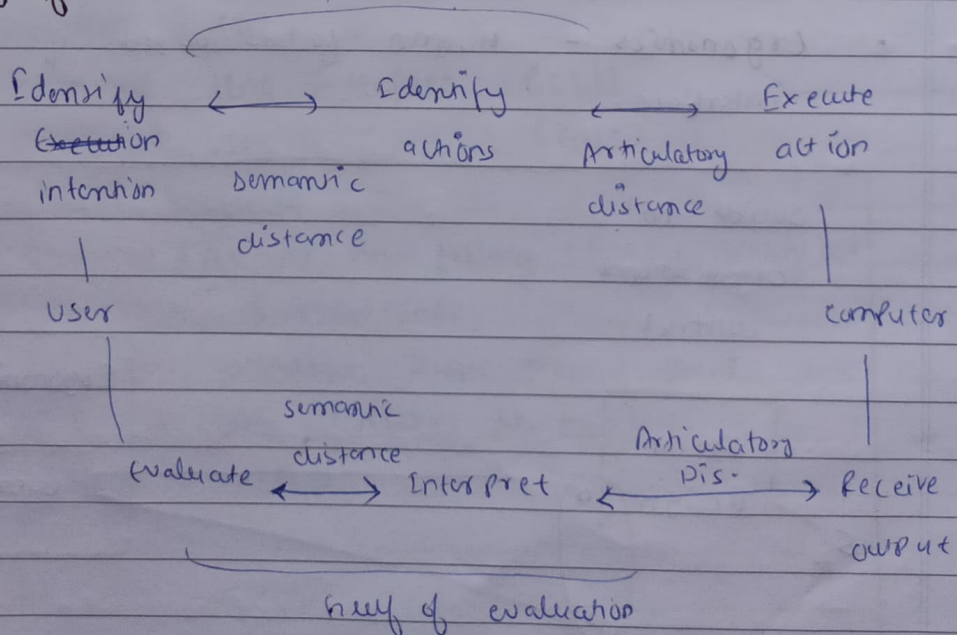 Identify Identify Execute
actions Articulatory action
intention Semantic distance
distance
user computer
semantic
distance Articulatory
Evaluate Interpret Dis. Receive
output
of evaluation